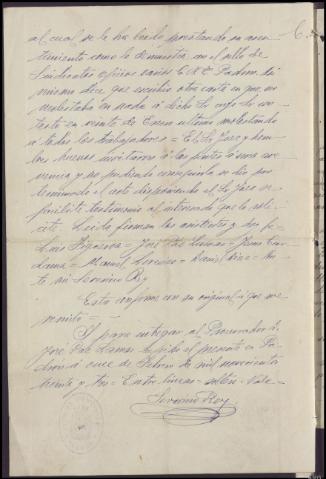 al cual se le ha leido prestando su asen
timiento como lo demuestra en el sello de
Sindicatos oficios varios C.N.T. Padron. Asi
mismo dice que escribio otra carta en que, no
molestaba en nada á dicho
en veinte de Enero ultimo molestando
á todos los trabajadores = El Sr Juez y hom
bres buenos invitaron á las partes á una ave
nencia y no pudiendo conseguirla se dio por
terminado el acto disponiendo el Sr Juez se
facilite testimonio al interesado que lo soli
cite. Leida firman los asistentes y doy fe
Luis = José = Jesus
= Manuel Lorenzo = Daniel = An
te mi Severino Rey
Esta conforme con su original á que me
remito = =
Y para entregar al Procurador D.
José Pale Lamas expido el presente en Pa
dron á once de Febrero de mil novecientos
treinta y tres = Entre lineas = Vale =
Severino Rey